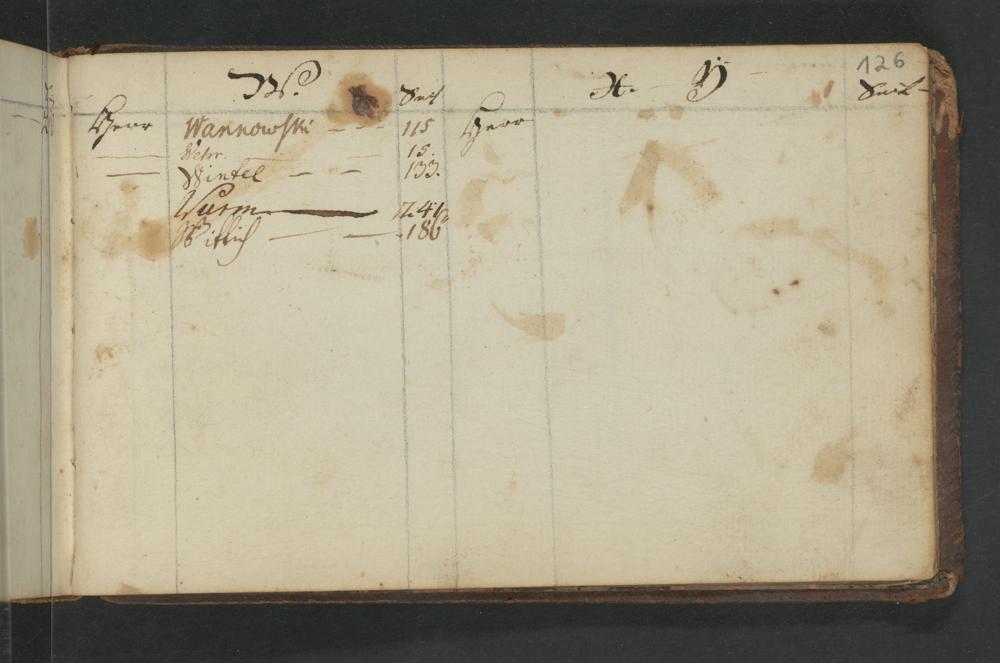 126
W. Seit X. Y Seit
Herr Wannowski - - - 115 Herr
Wehr. 15.
Winkel - - 133.
Wurm 241
Wittich 186